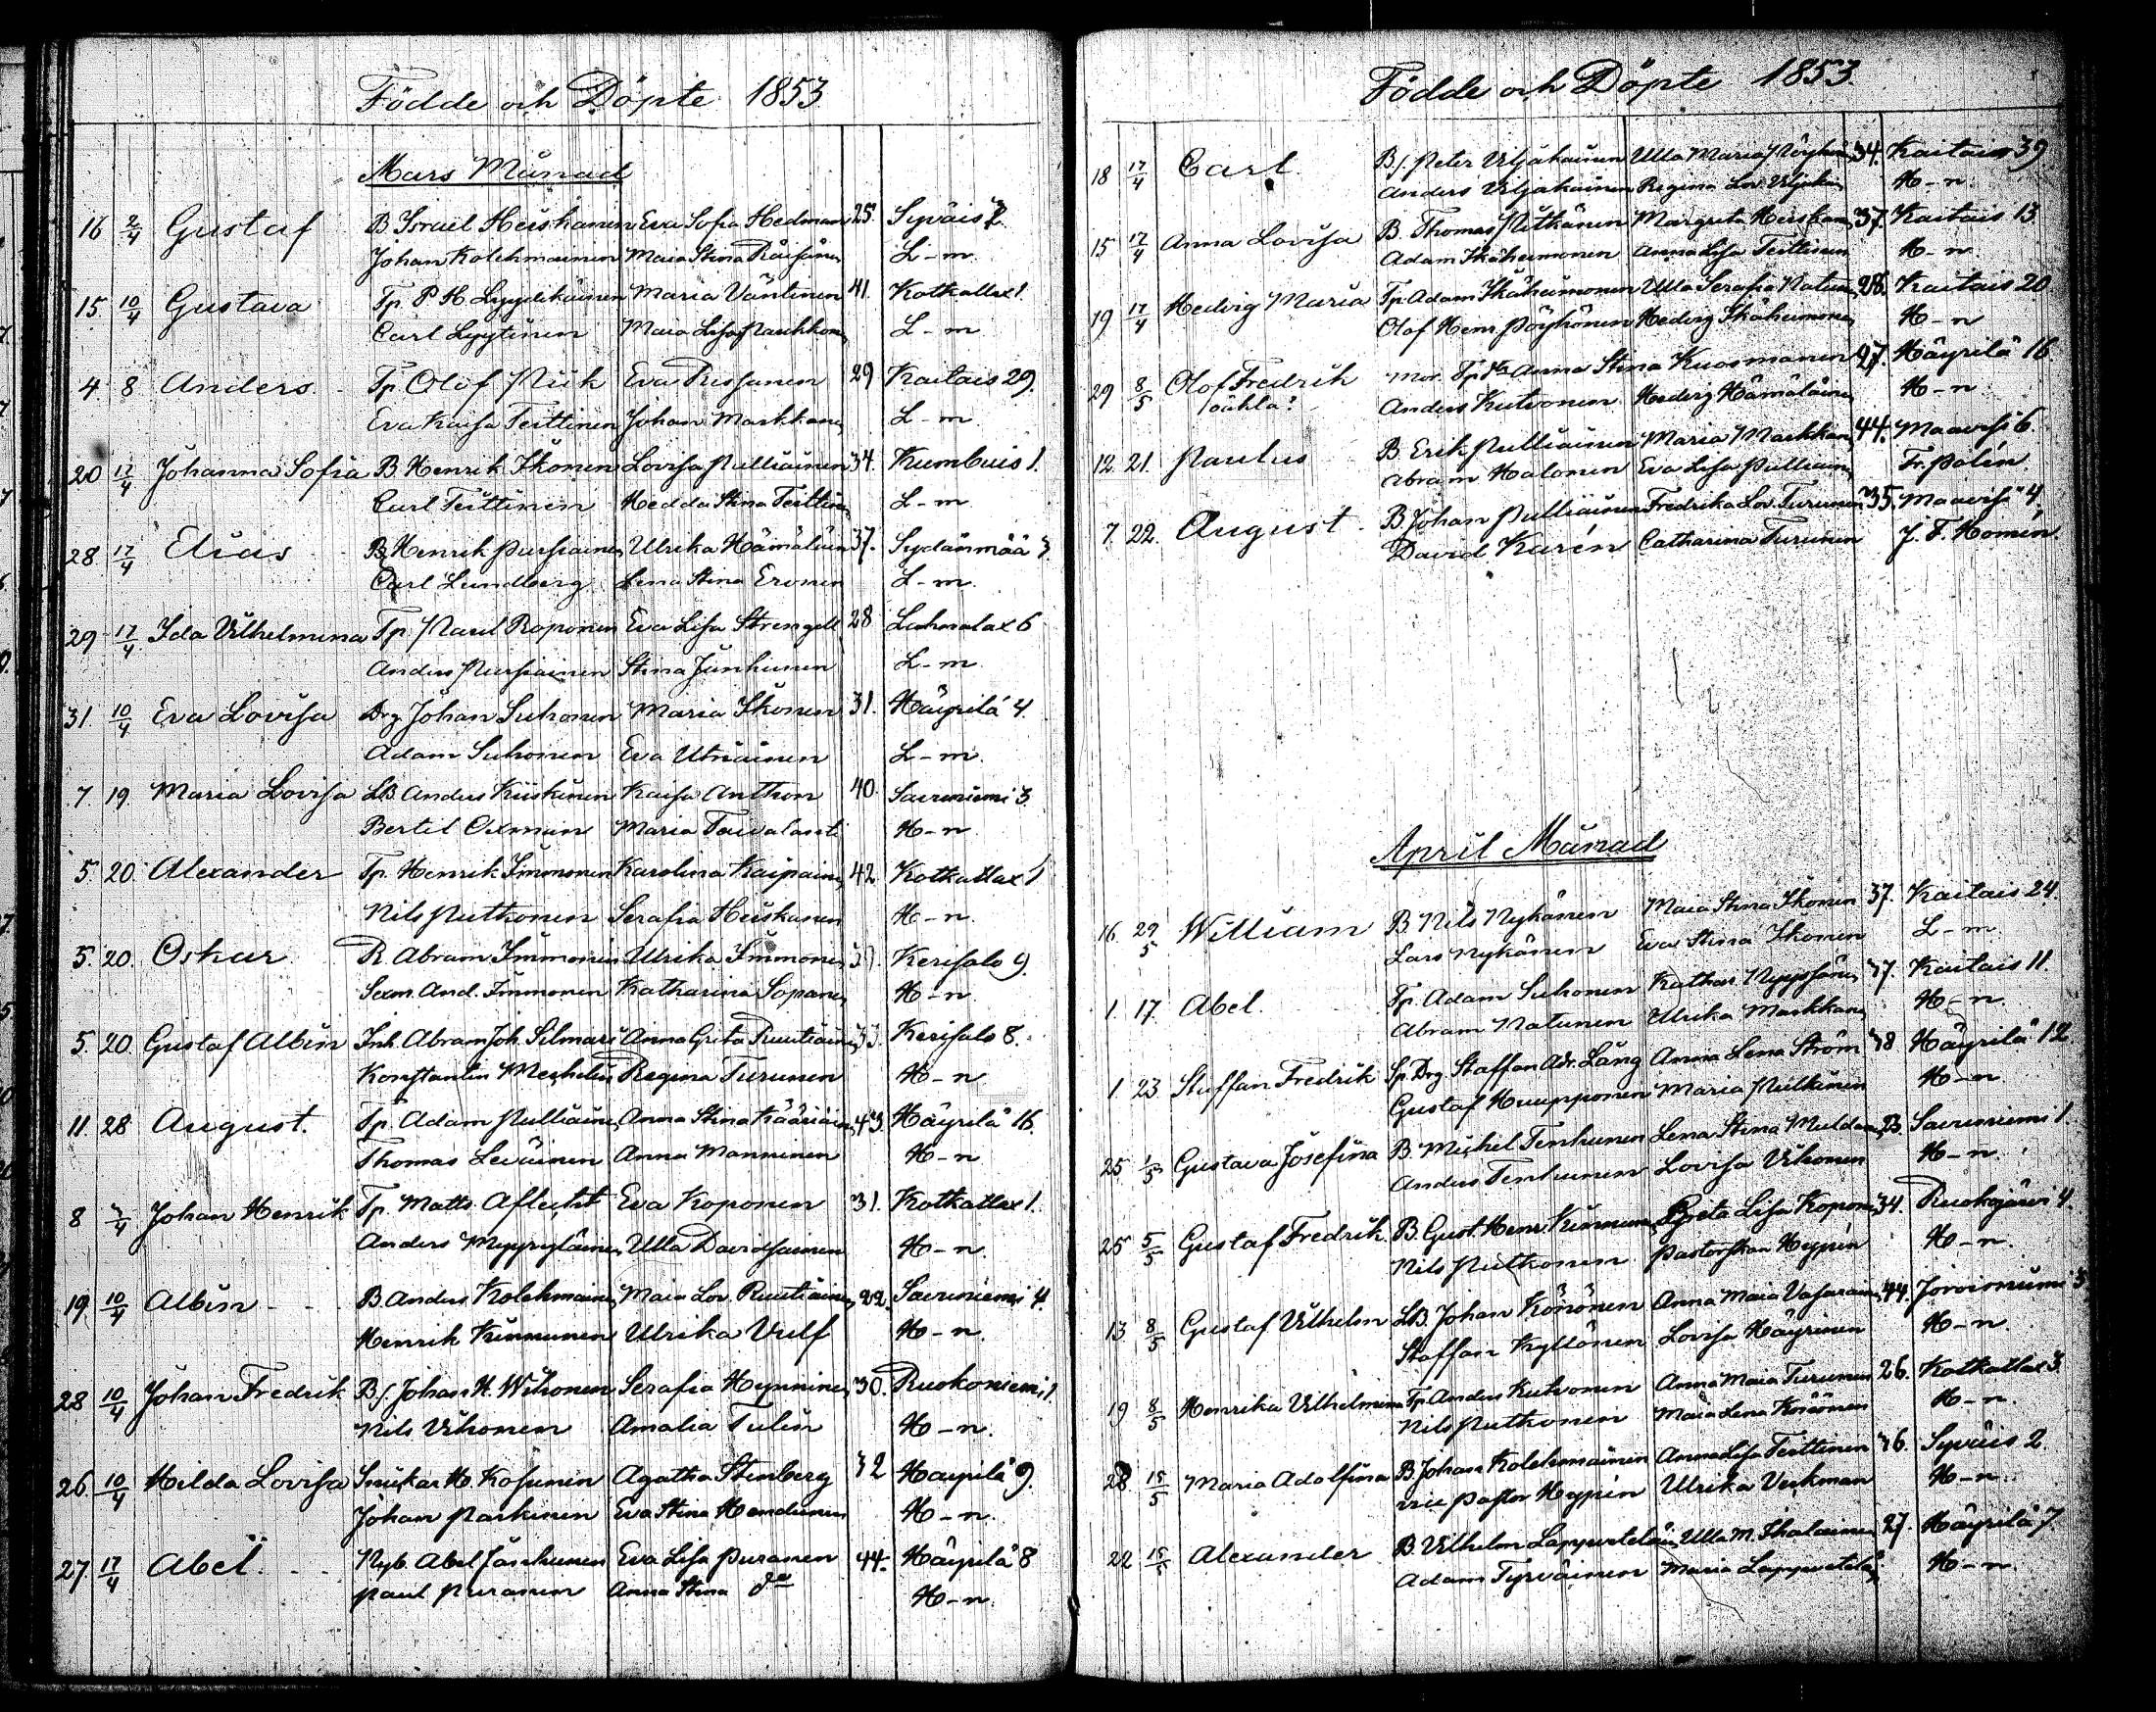 Födde och Döpte 1853
Mars Månad
16 2/4 Gustaf B Israel Heiskanen Eva Sofia Hedman 25. Syväis 2.
Johan Kolehmainen Maia Stina Räisänen L-m
15. 10/4 Gustava Tp. P H Lyydikäinen Maria Väntinen 41. Kotkatlax 1.
Carl Lyytinen Maia Lisa L-m
4. 8 Anders Tp Olof Piik Eva Rissanen 29 Kaitais 29.
Eva Kaisa Teittinen Johan Markkanen L-m
20 17/4 Johanna Sofia B. Henrik Ikonen Lovisa Pulliainen 34. Kumbuis 1.
Carl Teittinen Hedda Stina Teittinen L-m
28. 17/4 Elias B Henrik Pursiainen Ulrika Hämäläinen 37. Sydänmää 3
Carl Lundberg Lena Stina Eronen L-m.
29 17/4 Ida Vilhelmina Tp. Paul Roponen Eva Lisa Strengell 28 Lahnalax 6
Anders Pursiainen Stina Junhunen L-m
31. 10/4 Eva Lovisa Drg. Johan Suhonen Maria Ikonen 31. Häyrilä 4.
Adam Suhonen Eva Utriainen L-m.
7. 19. Maria Lovisa LB. Anders Kiiskinen Kaisa Anttson 40. Savuniemi 3.
Bertil Oxman Maria Taivalanti H-n.
5. 20. Alexander Tp. Henrik Immonen Karolina Kaipainen 42 Kotkatlax 1
Nils Putkonen Serafia Heiskanen H-n.
5. 20. Oskar R. Abram Immonen Ulrika Immonen Kerisalo 9.
Sexm. And. Immonen Katharina Sopanen H-n.
5. 20. Gustaf Albin Inh. Abram Joh. Silmari Anna Greta Ruutiainen 33. Kerisalo 8.
Konstantin Mechelin Regina Turunen H-n
11. 28 August. Tp. Adam Pulliainen Anna Stina Kääriäinen 43. Häyrilä 16.
Thomas Leväinen Anna Manninen H-n
8 3/4 Johan Henrik Tp. Matts Aflecht Eva Koponen 31. Kotkatlax 1.
Anders Myyryläinen Ulla Davidsainen H-n.
19. 10/4 Albin B. Anders Kolehmainen Maia Lov. Ruutiainen 22. Savuniemi 4.
Henrik Kinnunen Ulrika Vulf H-n.
28 10/4 Johan Fredrik Bs. Johan H. Wihonen Serafia Hynninen 30. Ruokoniemi 1
Nils Vihonen Amalia Tulin H-n.
26. 10/4 Hilda Lovisa Snickar H. Kosunen Agatha Stenberg 32 Häyrilä 9.
Johan Parkinen Eva Stina Handunen H-n.
27. 17/4 Abel Nyb. Abel Janhunen Eva Lisa Puranen 44. Häyrilä 8
Paul Puranen Anna Stina do H-n.
Födde och Döpte 1853.
18 17/4 Carl Bs. Peter Viljakainen Ulla Maria Pöyhön 34. Kaitais 39
Anders Viljakainen Regina Lov. Viljakain H-n.
15 17/4 Anna Lovisa B. Thomas Pitkänen Margreta Heiskanen 37. Kaitais 13
Adam Ikäheimonen Anna Lisa Teittinen H-n.
19 17/4 Hedvig Maria Tp. Adam Ikäheimonen Ulla Serafia Natunen 26. Kaitais 20
Olof Henr. Pöyhönen Hedvig Ikäheimonen H-n
29 8/5 Olof Fredrik Mor. Tp. Anna Stina Kuosmanen 27. Häyrilä 16
oäkta Anders Kutvonen Hedvig Hämäläinen H-n
12. 21. Paulus B. Erik Pulliainen Maria Markkan 44. Maavesi 6
Abram Halonen Eva Lisa Pulliain Fr. Polén.
7. 22. August B. Johan Pulliainen Fredrika Lov. Turunen 35. Maavesi 4
David Karén Catharina Turunen J. F. Homén.
April Månad
16. 29/5 William B. Nils Nykänen Maia Stina Ikonen 37. Kaitais 24.
Lars Nykänen Eva Stina Ikonen L-m
1. 17. Abel. Tp. Adam Suhonen Kathar. Nyyssönen 37. Kaitais 11.
Abram Natunen Ulrika Markkanen H-n.
1. 23. Staffan Fredrik Sp. Drg. Staffan Adr. Lång Anna Lena Ström 38 Häyrilä 12.
Gustaf Huupponen Maria Pitkänen H-n
25 1/5 Gustava Josefina B. Michel Tenhunen Lena Stina Muldon 23. Savuniemi 1.
Anders Tenhunen Lovisa Vihonen H-n.
25 5/5 Gustaf Fredrik B. Gust. Henr. Kinnunen Greta Lisa Koponen 34. Ruokojärvi 4.
Nils Putkonen Pastorskan Hypén H-n.
13 8/5 Gustaf Vilhelm LB. Johan Könönen Anna Maia Vasarain 44. Joroisniemi 3
Staffan Kyllönen Lovisa Häyrinen H-n.
19 8/5 Henrika Vilhelmina Tp. Anders Kutvonen Anna Maia Turunen 26. Kotkatlax 3.
Nils Putkonen Maia Lena Könönen H-n.
28 15/5 Maria Adolfina B. Johan Kolehmainen Anna Lisa Teittinen 36. Syväis 2.
vice pastor Hypén Ulrika Veckman H-n.
22 15/5 Alexander B. Vilhelm Lappvetelä Ulla M. Ihalainen 27. Häyrilä 7.
Adam Tyrväinen Maria Lappvetelä H-n.